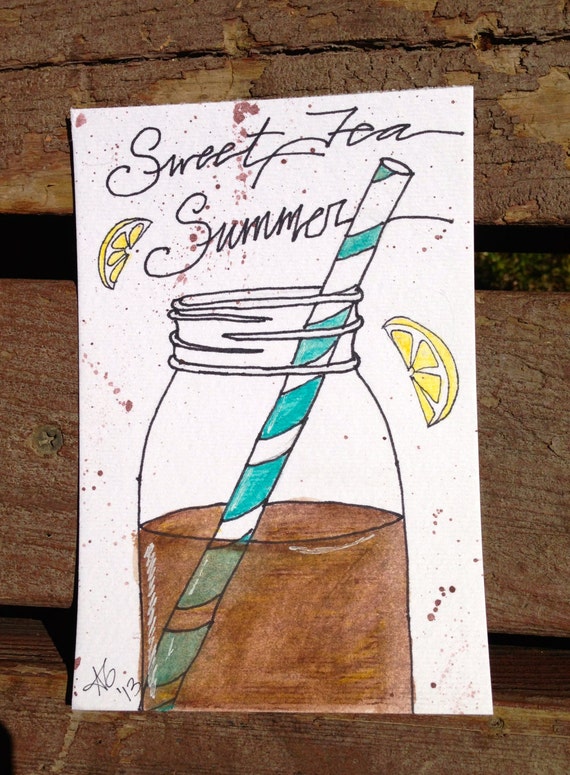 Sweet Tea
Summer
'13